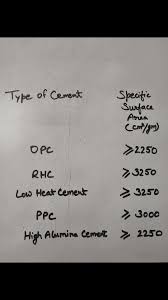 Type of Cement Specific
Surface
Area
(cm²/gm)
OPC ≥ 2250
RHC ≥ 3250
Low Heat Cement ≥ 3250
PPC ≥ 3000
High Alumina Cement ≥ 2250